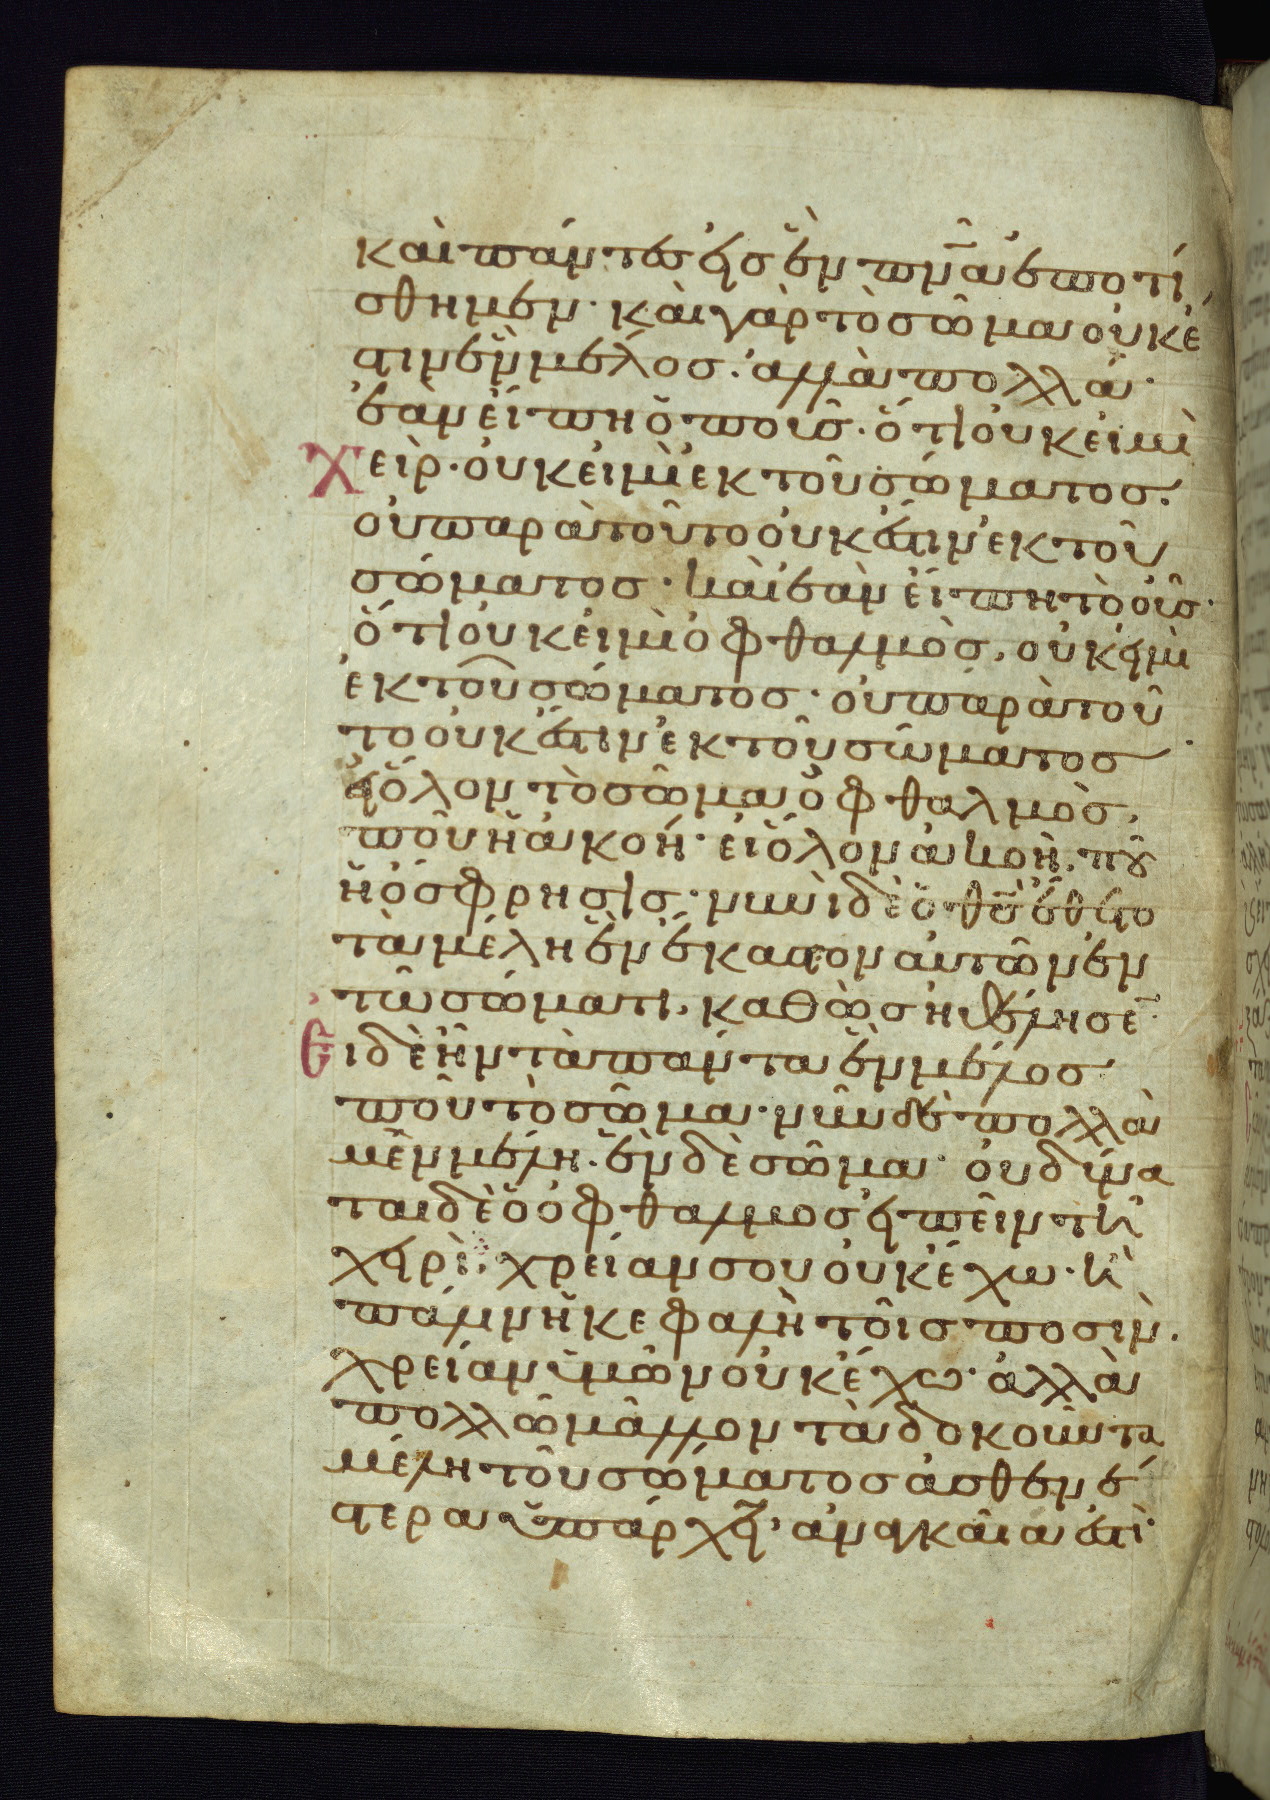 καὶ πάντες εἰς ἓν πν̅α ἐποτί
σθημεν· καὶ γὰρ τὸ σῶμα οὐκ ἔ
στιν ἓν μέλος. ἀλλὰ πολλά·
ἐὰν εἴπη ὁ ποῦς. ὅτι οὐκ εἰμὶ
χεὶρ. οὐκ εἰμὶ ἐκ τοῦ σώματος.
οὐ παρὰ τοῦτο οὐκ ἔστιν ἐκ τοῦ
σώματος. καὶ ἐὰν εἴπη τὸ οὖς·
ὅτι οὐκ εἰμὶ ὀφθαλμὸς, οὐκ εἰμὶ
ἐκ τοῦ σώματος. οὐ παρὰ τοῦ
το οὐκ ἔστιν ἐκ τοῦ σώματος·
εἰ ὅλον τὸ σῶμα ὀφθαλμὸς,
ποῦ ἡ ἀκοή. εἰ ὅλον ἀκοὴ, ποῦ
ἡ ὄσφρησις. νυνὶ δὲ ὁ θς̅ ἔθετο
τὰ μέλη ἓν ἕκαστον αὐτῶν ἐν
τῶ σώματι, καθὼς ἠθέλησε̅·
Εἰ δὲ ἦν τὰ πάντα ἓν μέλος
ποῦ τὸ σῶμα· νῦν δὲ πολλὰ
μὲν μέλη. ἓν δὲ σῶμα· οὐ δύνα
ται δὲ ὁ ὀφθαλμος εἰπεῖν τῆ
χειρὶ. χρείαν σου οὐκ ἔχω. ἢ
πάλιν ἡ κεφαλὴ τοῖς ποσὶν.
χρείαν ὑμῶν οὐκ ἔχω· ἀλλὰ
πολλῶ μᾶλλον τὰ δοκοῦντα
μέλη τοῦ σώματος ἀσθενέ
στερα ὑπάρχειν, ἀναγκαῖα ἐστὶ·